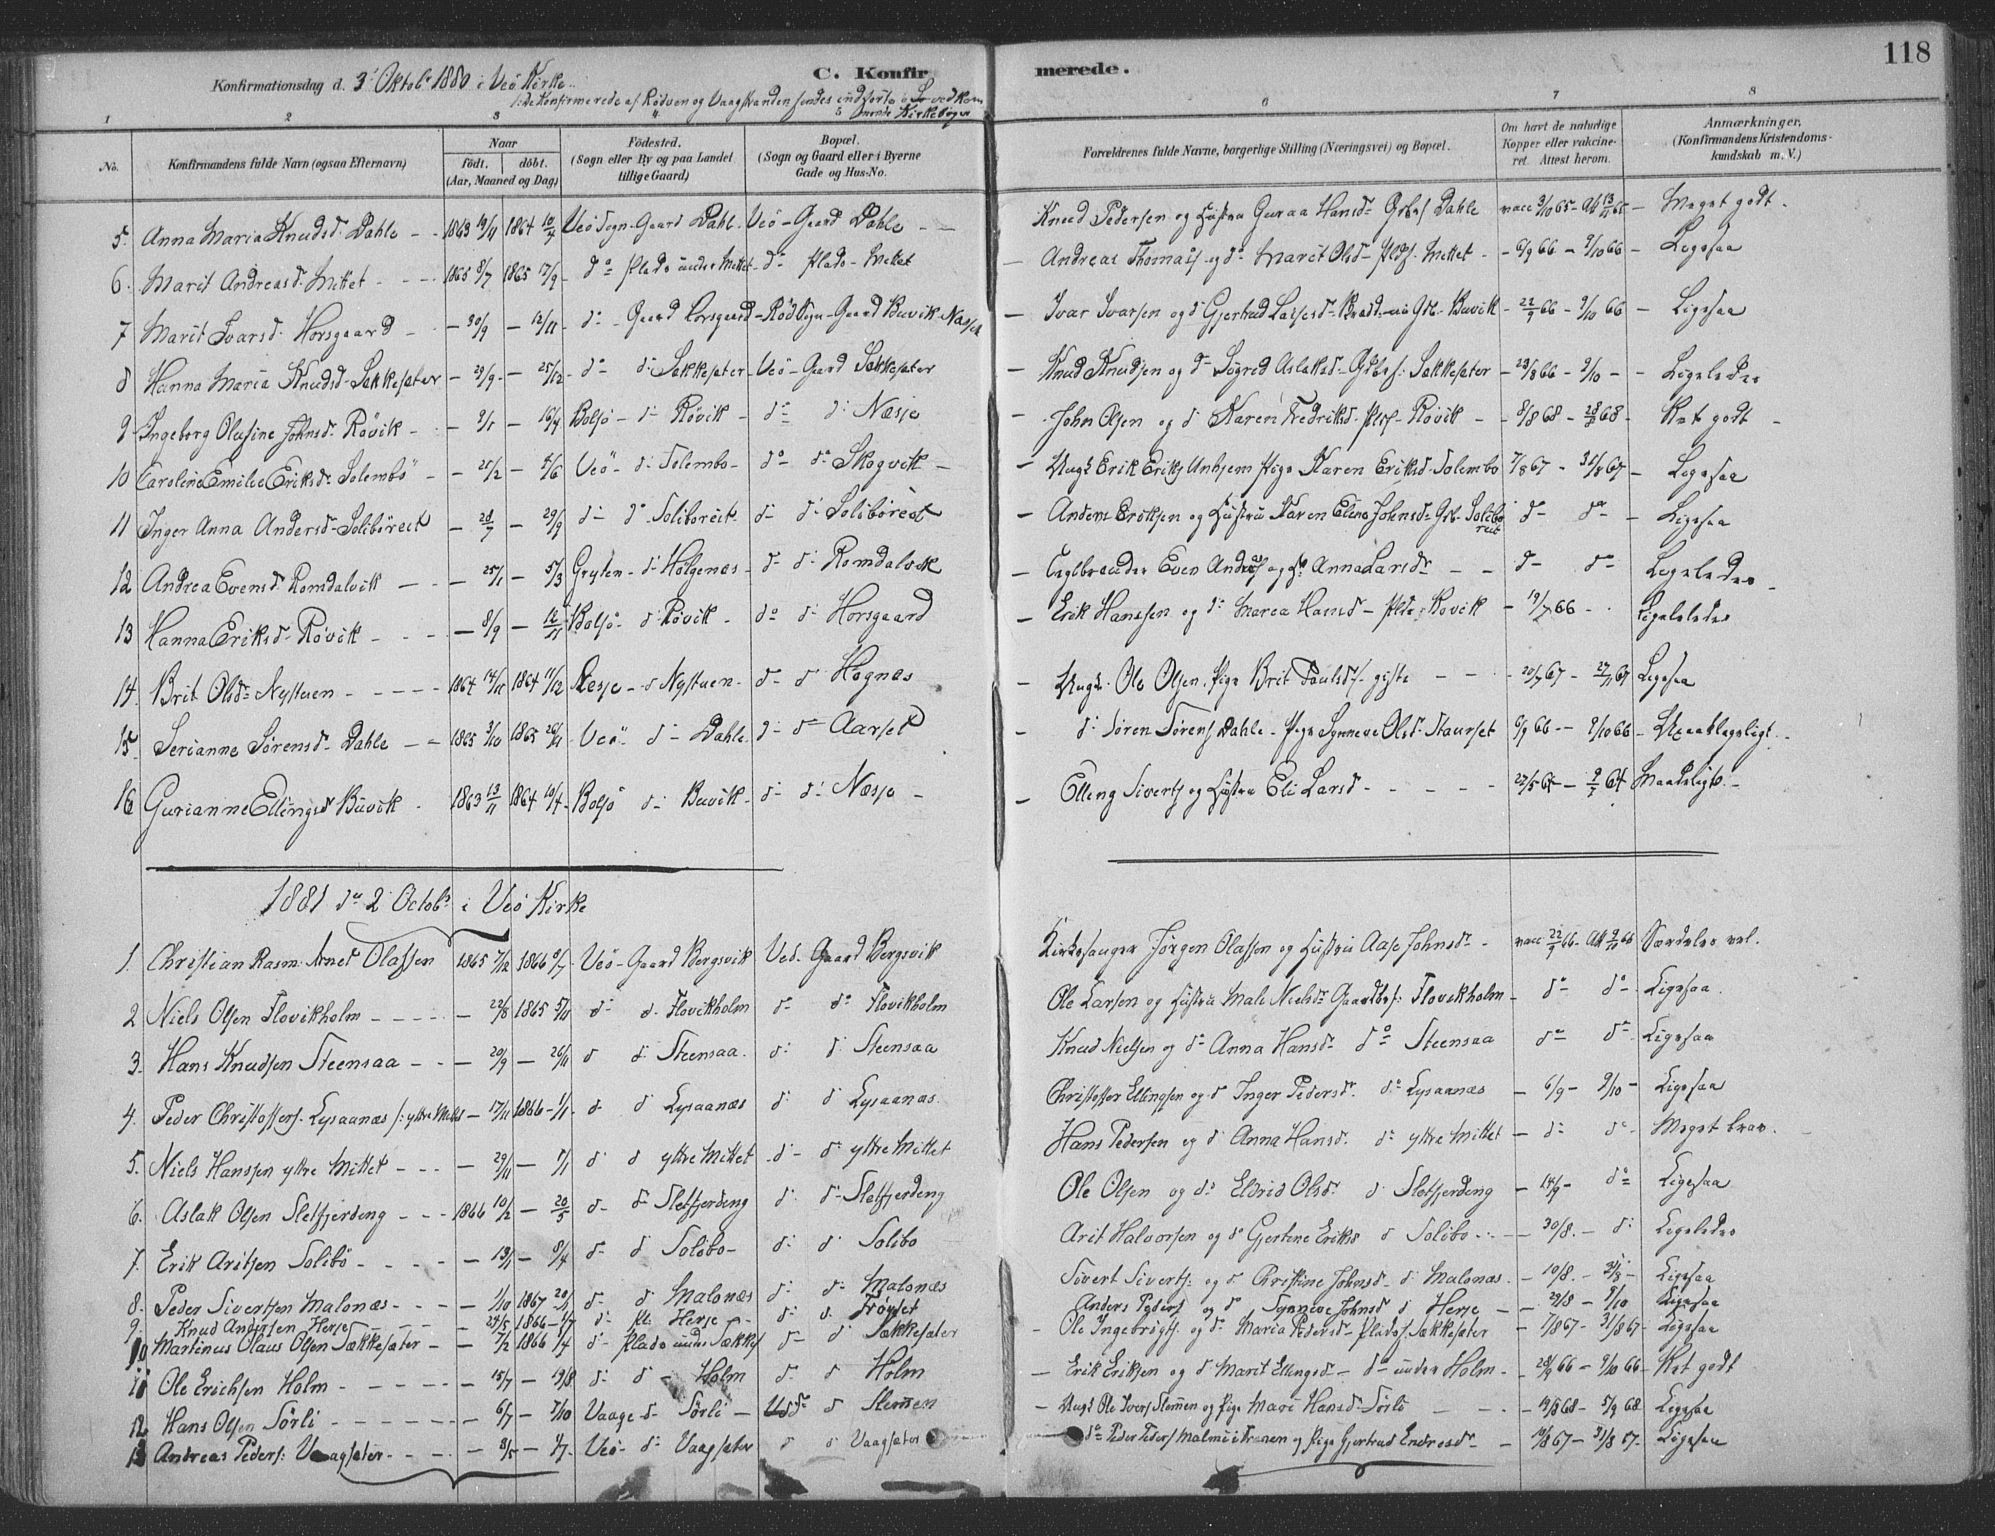 118
C. Konfirmerede.
Konfirmationsdag d. 3' Oktob. 1880 i Veö Kirke.
de Konfirmerede af Rödven og Vaagstranden findes indförte i Kirkebogen
1 2 3 4 5 6 7 8
No. Konfirmandens fulde Navn (ogsaa Efternavn) Naar födt. döbt. (Aar, Maaned og Dag) Födested. (Sogn eller By og paa Landet tillige Gaard) Bopæl. (Sogn og Gaard eller i Byerne Gade og Hus-No. Forældrenes fulde Navne, borgerlige Stilling (Næringsvei) og Bopæl. Om havt de naturlige Kopper eller vakcineret. Attest herom. Anmærkninger. (Konfirmandens Kristendomskundskab m. V.)
5. Anna Maria Knudsd. Dahle 1863 1864 Veö Sogn Gaard Dahle Veö - Gaard Dahle Knud Pedersen og Hustru Guraa Hansd. Dahle Meget godt.
6. Marit Andreasd. Mittet 1865 8/7 1865 17/9 do Plads under Mittet do Plads Mittet Andreas Thomas og do Marit Olsd. Mittet 6/9 66 9/10 66 Ligesaa
7 Marit Ivarsd. Horsgaard 30/9 12/11 do Gaard Horsgaard Röd Sogn Gaard Buvik Ivar Ivarsen og do Gjertrud Buvik 66 9/10 66 Ligesaa
8 Hanna Maria Knudsd. Sækkesæter 29/9 25/12 do do Sækkesæter Veö Gaard Sækkesæter Knud Knudsen og do Sigrid Aslaksd. Sækkesæter 23/8 66 9/10 Ligeledes
9 Ingeborg Olufine Johnsd. Rövik 9/1 16/4 Bolsö do Rövik do do Næsje John Olsen og do Karen Fredriksd. Rövik 8/8 68 68 Ret godt
10 Caroline Emilie Eriksd. Solembö 21/2 5/6 Veö do Solembo do do Skogvik Ungk. Erik Eriks. Unhjem Pige Karen Eriksd. Solembo 7/8 67 31/8 67 Ligesaa
11 Inger Anna Andersd. Soliböreit 28/7 29/9 do do Soliboreit do do Soliböreit Anders Eriksen og Hustru Karen Eline Johnsd. Solibo reit do do Ligesaa
12 Andrea Evensd. Romdalvik 25/1 5/3 Grytten do Holgenæs do do Romdalvik Teglbrænder Even Anders. og H. Anna Larsd. do do Ligeledes
13 Hanna Eriksd. Rövik 8/9 12/11 Bolsö do Rövik do do Horsgaard Erik Hanssen og do Maria Hansd. Plds. Rövik 19/7 66 Ligeledes
14. Brit Olsd. Nystuen 1864 14/11 1864 11/12 Nesje do Nystuen do do Hognæs Ungk. Ole Olsen, Pige Brit Paulsd. 20/7 67 27/11 67 Ligesaa
15. Serianne Sörensd. Dahle 1865 3/10 1865 26/11 Veö do Dahle do do Aarset do Sören Sörens. Dahle Pige Synneve Olsd. Staurset 6/9 66 9/10 66 Upaaklageligt.
16 Gurianne Ellingsd. Buvik 1863 13/11 1864 10/4 Bolsö do Buvik do do Næsje Elling Siverts. og Hustru Eli Larsd. 64 Maadeligt.
1881 d. 2 Octob. i Veö Kirke
1. Christian Rasm. Arnet Olassen 1865 7/12 1866 8/7 Veö Gaard Bergsvik Veö Gaard Bergsvik Kirkesanger Jörgen Olassen og Hustru Aase Johnsd. vacc 22/9 66 Att 9/11 66 Særdeles vel.
2 Niels Olsen Flovikholm 22/8 1865 5/11 do do Flovikholm do do Flovikholm Ole Larsen og Hustru Mali Nielsd. Gaardbr. Flovikholm do do Ligesaa.
3. Hans Knudsen Steensaa 20/9 26/11 do do Steensaa. do do Steensaa Knud Nielsen og do Anna Hansd. do Steensaa do do Ligesaa
4. Peder Christoffers. Lysaanæs ytre Mittet 17/11 1866 1/1 do do Lysaanæs do do Lysaanæs. Christoffer Ellingsen og do Inger Pedersd. do Lysaanæs 6/9 9/10 Ligesaa
5. Niels Hanssen ytre Mittet 29/11 7/1 do do ytre Mittet do do ytre Mittet Hans Pedersen og do Anna Hansd. do ytre Mittet do do Meget brav.
6. Aslak Olsen Sletfjerdeng 1866 10/2 20/5 do do Sletfjerdeng do do Sletfjerdeng Ole Olsen og do Eldrid Olsd. do Sletfjerdeng 14/9 do Ligesaa
7. Erik Aritsen Solibö 13/1 8/4 do do Solibo do do Solibo Arit Halvorsen og do Gjertine Eriksd do Solibo 30/8 do Ligeledes
8. Peder Sivertsen Malonæs 1/10 1867 20/1 do do Malonæs do do Malonæs Sivert Siverts. og do Christine Johnsd. do Malonæs 10/8 31/8 Ligesaa
9. Knud Andersen Herje 24/5 1866 1/7 do Pl. Herje do do Tröyset Anders Peders. og do Synneve Johnsd do Herje 29/8 9/10 Ligesaa
10 Martinus Olaus Olsen Sækkesæter 7/2 1866 1/4 do Plads under Sækkes. do do Sækkesæter Ole Ingebrigts. og do Maria Pedersd. Plads Sækkesæter 7/8 67 31/8 67 Ligesaa
11 Ole Erichsen Holm 15/7 19/8 do do Holm do do Holm Erik Eriksen og do Marit Ellingsd. do under Holm 66 9/10 66 Ret godt
12 Hans Olsen Sörli 6/7 7/10 Vaage do Sörli do do Slemmen Ungk Ole Ivers. Slemmen og Pige Mari Hansd. Sörli 19/8 68 5/9 68 Ligesaa
13 Andreas Peders. Vaagsæter 8/5 1/7 Veö do Vaagsæter do do Vaagsæter do Peder Peders. og Pige Gjertrud Endresd. 19/8 67 31/8 67 Ligesaa